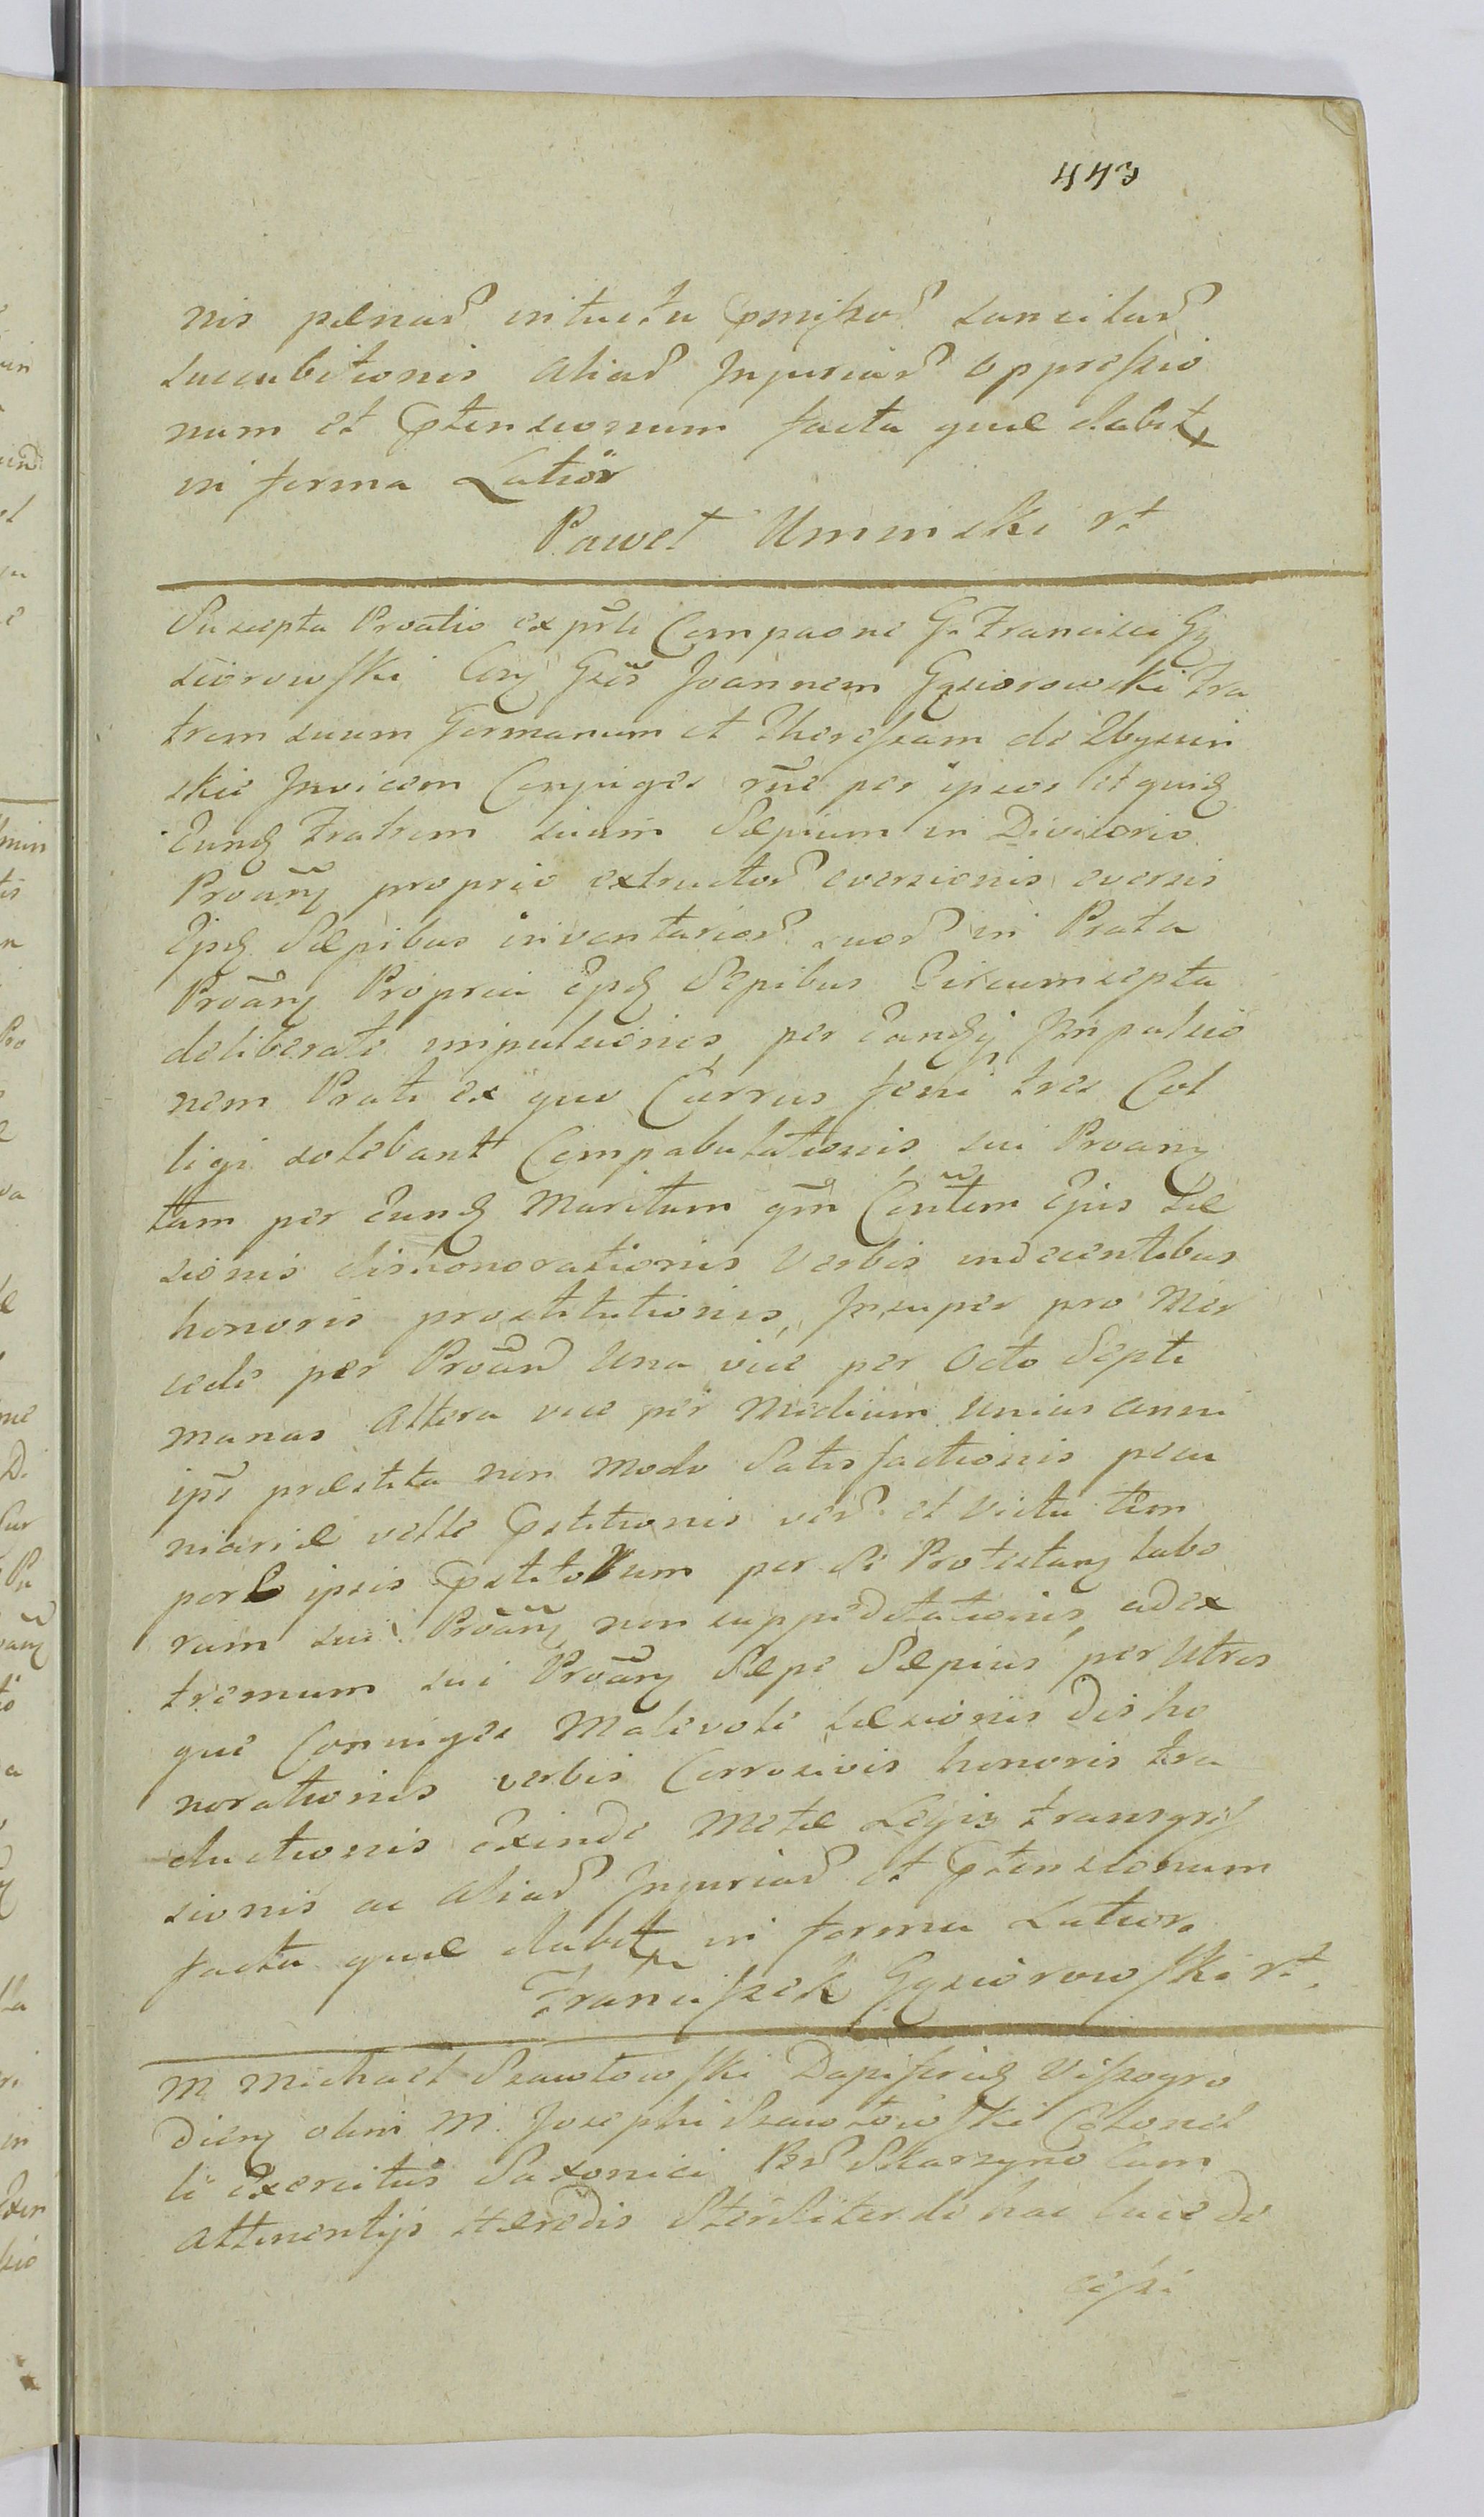 443
nis pænar intuitu Cpmissor sancitar
succubitionis aliar Injuriar oppressio
num et Cptensionum facta quæ dabit
in forma Latior
Paweł Uminski rt
Suscepta Proatio ex prte Compaone G. Francisci Gą
siorowski Cony Gsos Joannem Gąsiorowski Fra
trem suum Germanum et Theressam de Zbyszin
skie Invicem Conjuges rne per ipsos et quidq
Eundq Fratrem suum Sæpium in Divisorio
Proany proprio extructor eversionis eversis
Ejsdq Sæpibus inventarior suor in Prata
Proany Propria Epdq Sepibus Circumsepta
deliberate impulsionis, per Eandq Impulsio
nem Prati ex quo Currus feni tres Col
ligi solebant Compabulationis sui Proany
tam per Eundq Maritum qm Contem Ejus Læ
sionis dishonorationis verbis indecentibus
honoris prostitutionis, Insuper pro Mer
cede per Proand Una vice per Octo Septi
manas Altera vice per Medium unius anni
ipsi præstita non modo Satisfactionis pecu
niariæ velle Cpstitionis ver et victu tem
pore ipsis Cpstitorum per se Protestany labo
rum sui Proany non suppeditationis, ad ex
tremum sui Proany Sæpe Sæpius per Utros
que Conniges Malevole læsionis disho
norationis verbis Corrosivis honoris tra
ductionis exinde Metæ Legis transgres
sionis ac aliar Injuriar et Cptensionum
facta quæ dabit in forma Latior.
Franciszek Gąsiorowski rt.
M Michael Szawłowski Dapiferidq Viszogro
Dieny olim M. Josephi Szawłowski Colonel
li Exercitus Saxonici Br Skarzyno Cum
Attinentijs Hæredis Sterliter de hac luce de
cessi